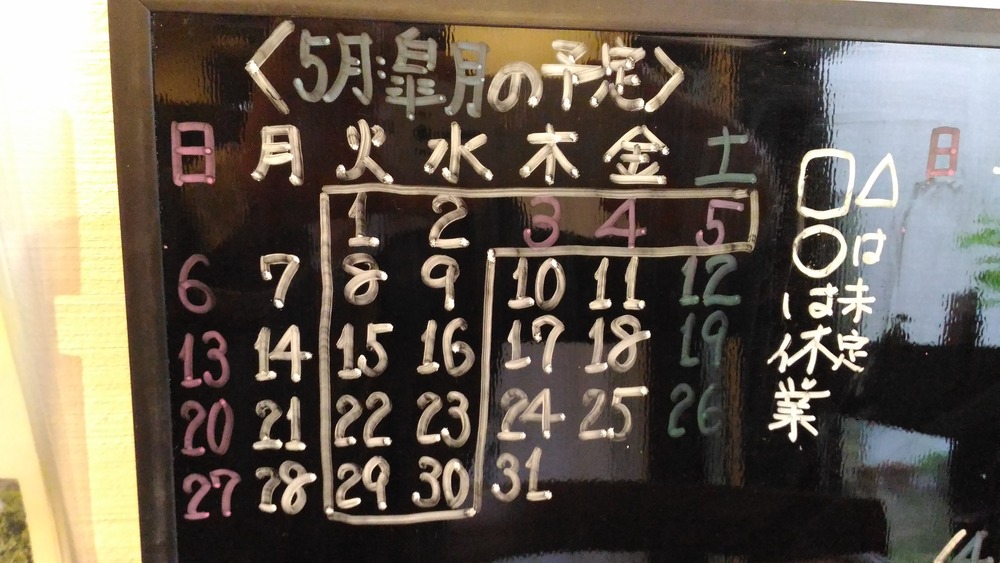 〈5月皐月の予定〉
日 月 火 水 木 金 土
1 2 3 4 5
6 7 8 9 10 11 12
13 14 15 16 17 18 19
20 21 22 23 24 25 26
27 28 29 30 31
△は未定
□○は休業
日